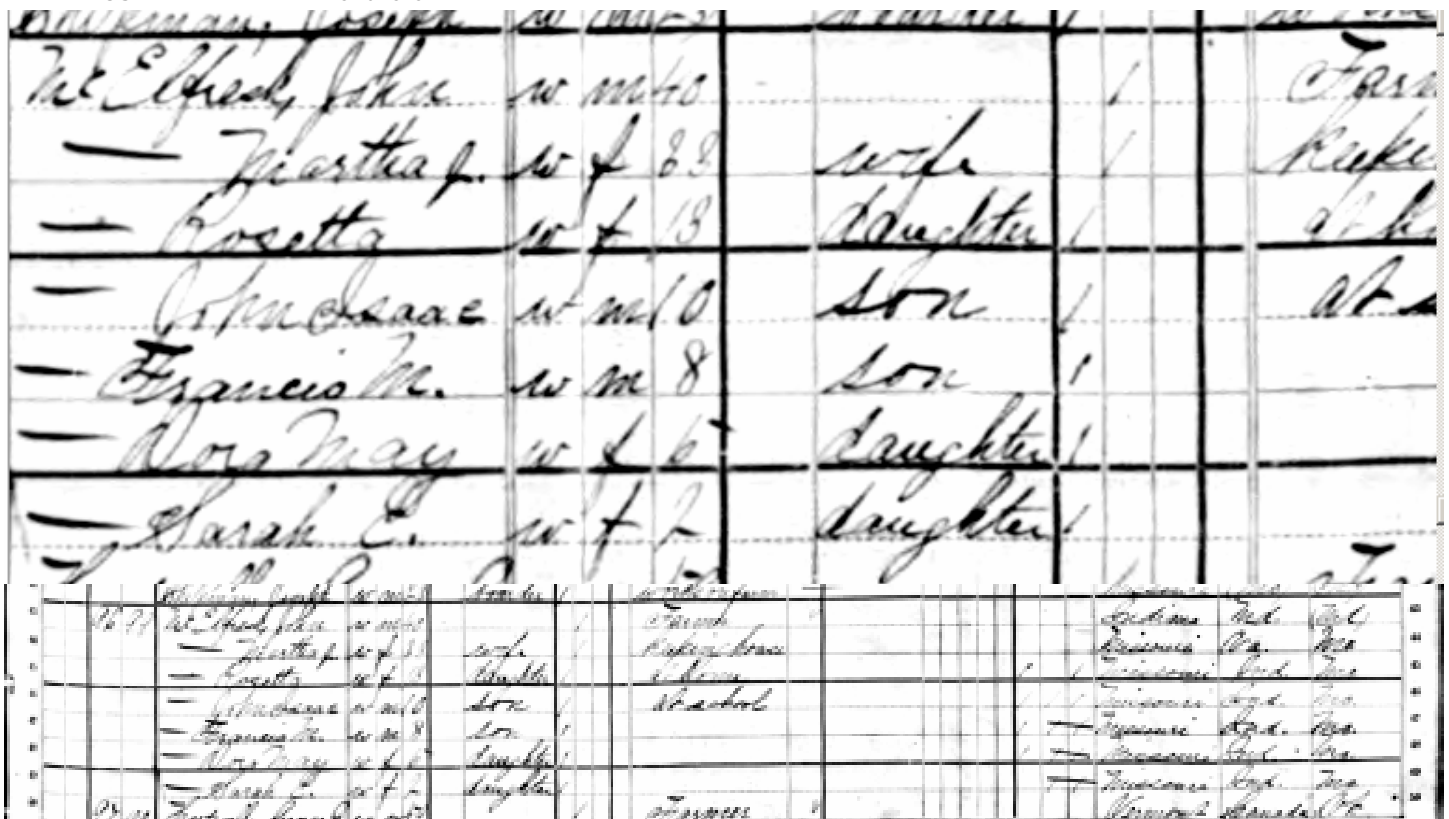 Joseph w
McElfresh, John w m 40 1 Farm
— Martha J. w f 33 wife 1 Keepi
— Rosetta w f 13 daughter 1 at h
— John Isaac w m 10 son 1 at s
— Francis M. w m 8 son 1
— Dora May w f 6 daughter 1
— Sarah E. w f 2 daughter 1
boarder
McElfresh John w m 40 Farmer Indiana Md. Md
— Martha J. w f 33 wife Keeping house Missouri Va. Mo
— Rosetta w f 13 daughter at home Missouri Ind. Mo
— John Isaac w m 10 son at school Missouri Ind. Mo.
— Francis M. w m 8 son Missouri Ind. Mo.
— Dora May w f 6 daughter Missouri Ind. Mo.
— Sarah E. w f 2 daughter Missouri Ind. Mo.
Farmer Vermont Canada Vt.